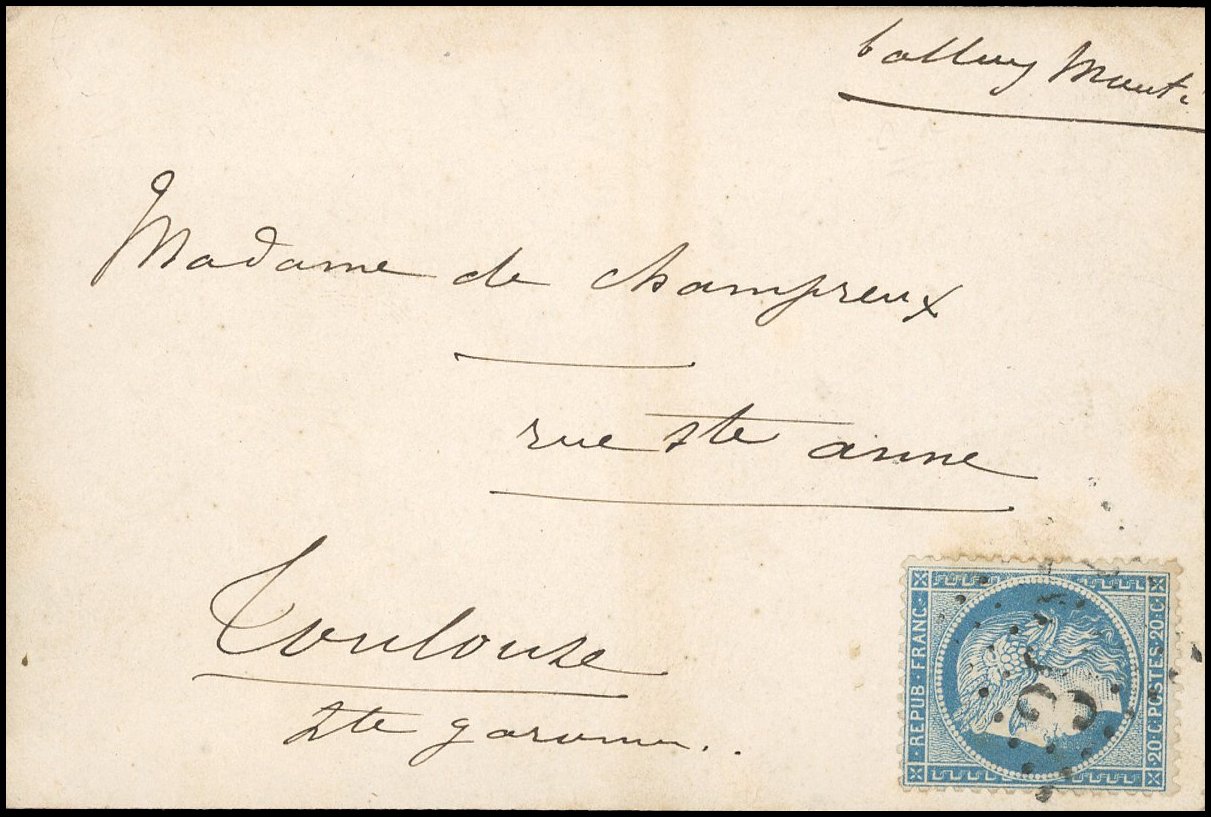 Madame de champreux
rue Ste anne
Toulouse
Hte garonne..
REPUB · FRANC ·
20 · C · POSTES · 20 · C ·